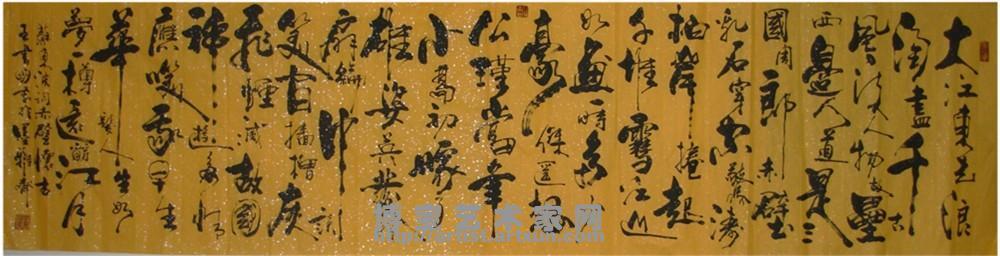 大江東去浪
淘盡千古
風流人物故壘
西邊人道是三
國周郎赤壁
乱石穿空驚濤
拍岸捲起
千堆雪江山
如畫一時多少
豪傑遥想
公瑾當年
小喬初嫁了
雄姿英發
扇綸巾談
笑間檣櫓灰
飛煙滅故國
神遊多情
應笑我早生
華髮人生如
夢一樽還酹江月
蘇東坡詞赤壁懷古
博宝艺术家网
http://artist.artxun.com